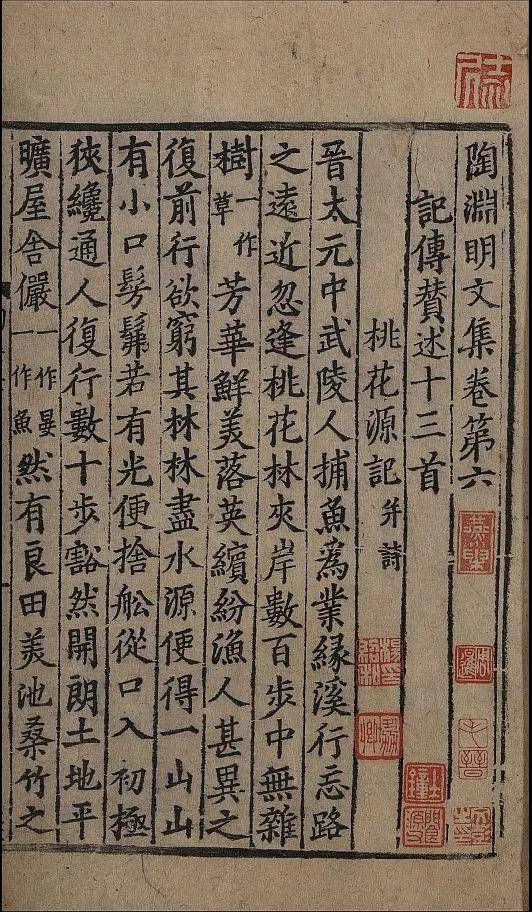 陶淵明文集卷第六
記傳賛述十三首
桃花源記并詩
晉太元中武陵人捕魚爲業緣溪行忘路
之遠近忽逢桃花林夾岸數百步中無雜
樹一作草芳華鮮美落英繽紛漁人甚異之
復前行欲窮其林林盡水源便得一山山
有小口髣髴若有光便捨舩從口入初極
狹纔通人復行數十步豁然開朗土地平
曠屋舍儼一作晏一作魚然有良田美池桑竹之
周暹
毛晉